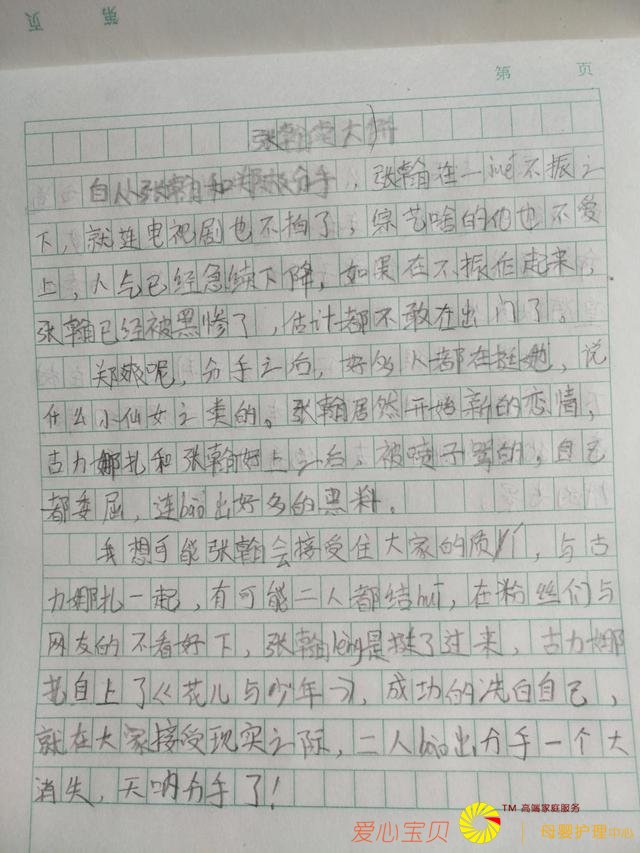 第 页
第 页
张翰南大
自从张翰和郑爽分手,张翰在一jué不振之
下,就连电视剧也不拍了,综艺啥的他也不爱
上,人气已经急续下降,如果在不振作起来,
张翰已经被黑惨了,估计都不敢在出门了。
郑爽呢,分手之后,好多人都在挺她,说
什么小仙女之类的。张翰居然开始新的恋情,
古力娜扎和张翰好上之后,被喷子骂的,自己
都委屈,连bào出好多的黑料。
我想可能张翰会接受住大家的质,与古
力娜扎一起,有可能二人都结hūn,在粉丝们与
网友的不看好下,张翰lèng是挺了过来,古力娜
扎自上了《花儿与少年》,成功的洗白自己,
就在大家接受现实之际,二人bào出分手一个大
消失,天呐分手了!
爱心宝贝
TM 高端家庭服务
母婴护理中心